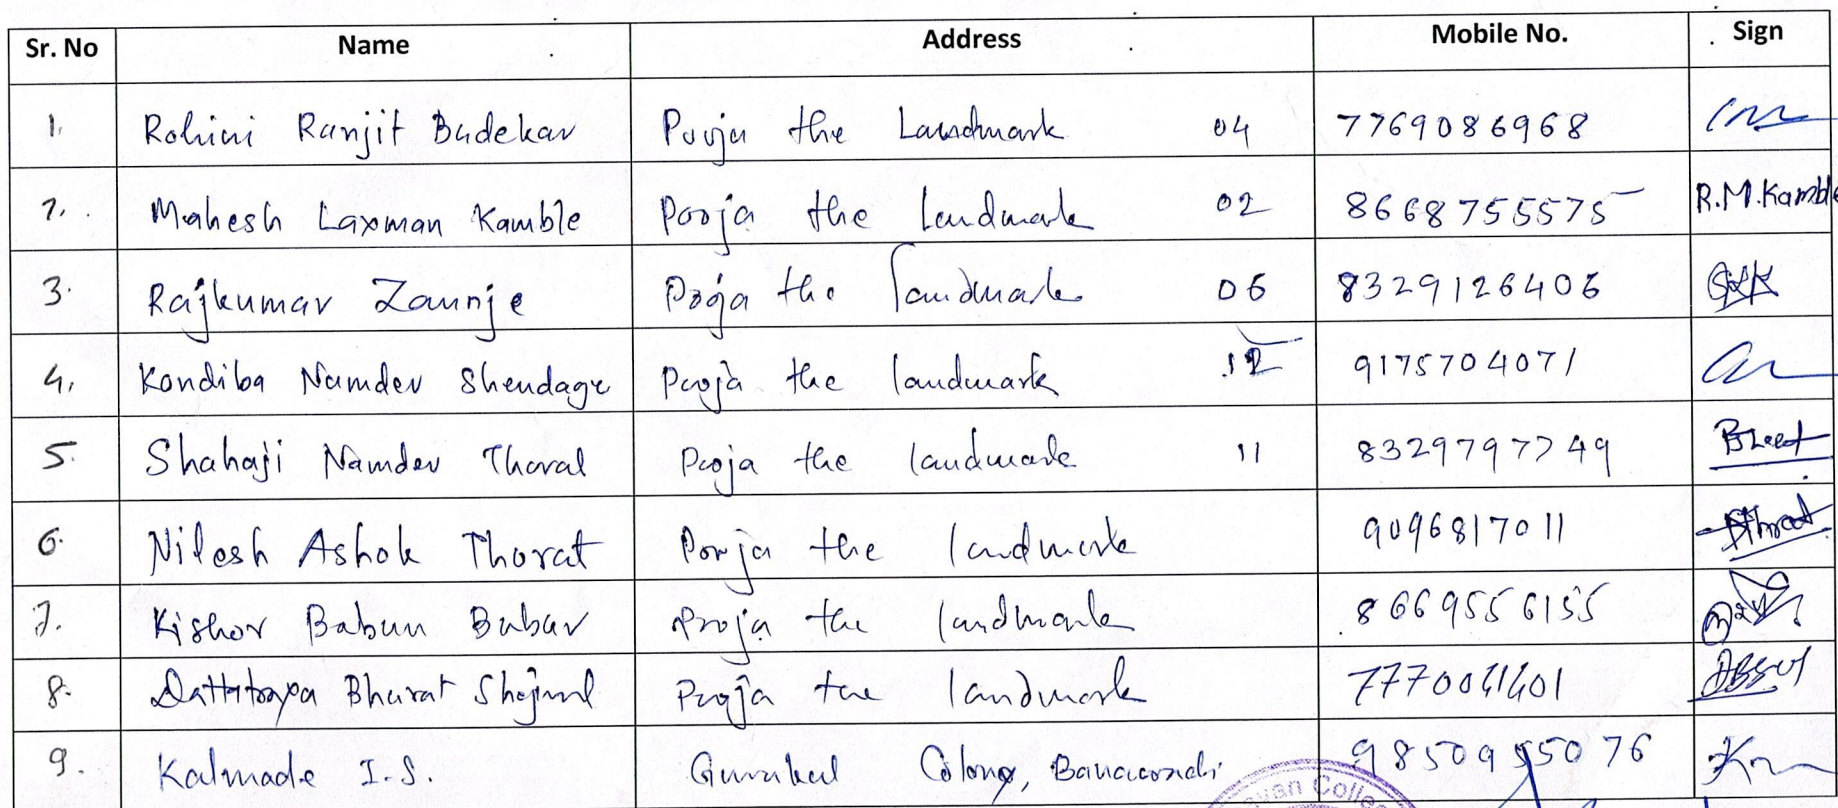 Sr. No Name Address Mobile No. Sign
1. Rohini Ranjit Budekar Pooja the Landmark 04 7769086968
2. Mahesh Laxman Kamble Pooja the landmark 02 8668755575 R.M.Kamble
3. Rajkumar Zaunje Pooja the landmark 06 8329126406
4. Kondiba Namdev Shendage Pooja the landmark 12 9175704071
5. Shahaji Namdev Thoral Pooja the landmark 11 8329797749
6. Nilesh Ashok Thorat Pooja the landmark 9096817011
7. Kishor Babun Babar Pooja the landmark 8669556155
8. Dattatraya Bharat Shejwal Pooja the landmark
9. Kalmade I.S. Gurukul Colony, 9850955076